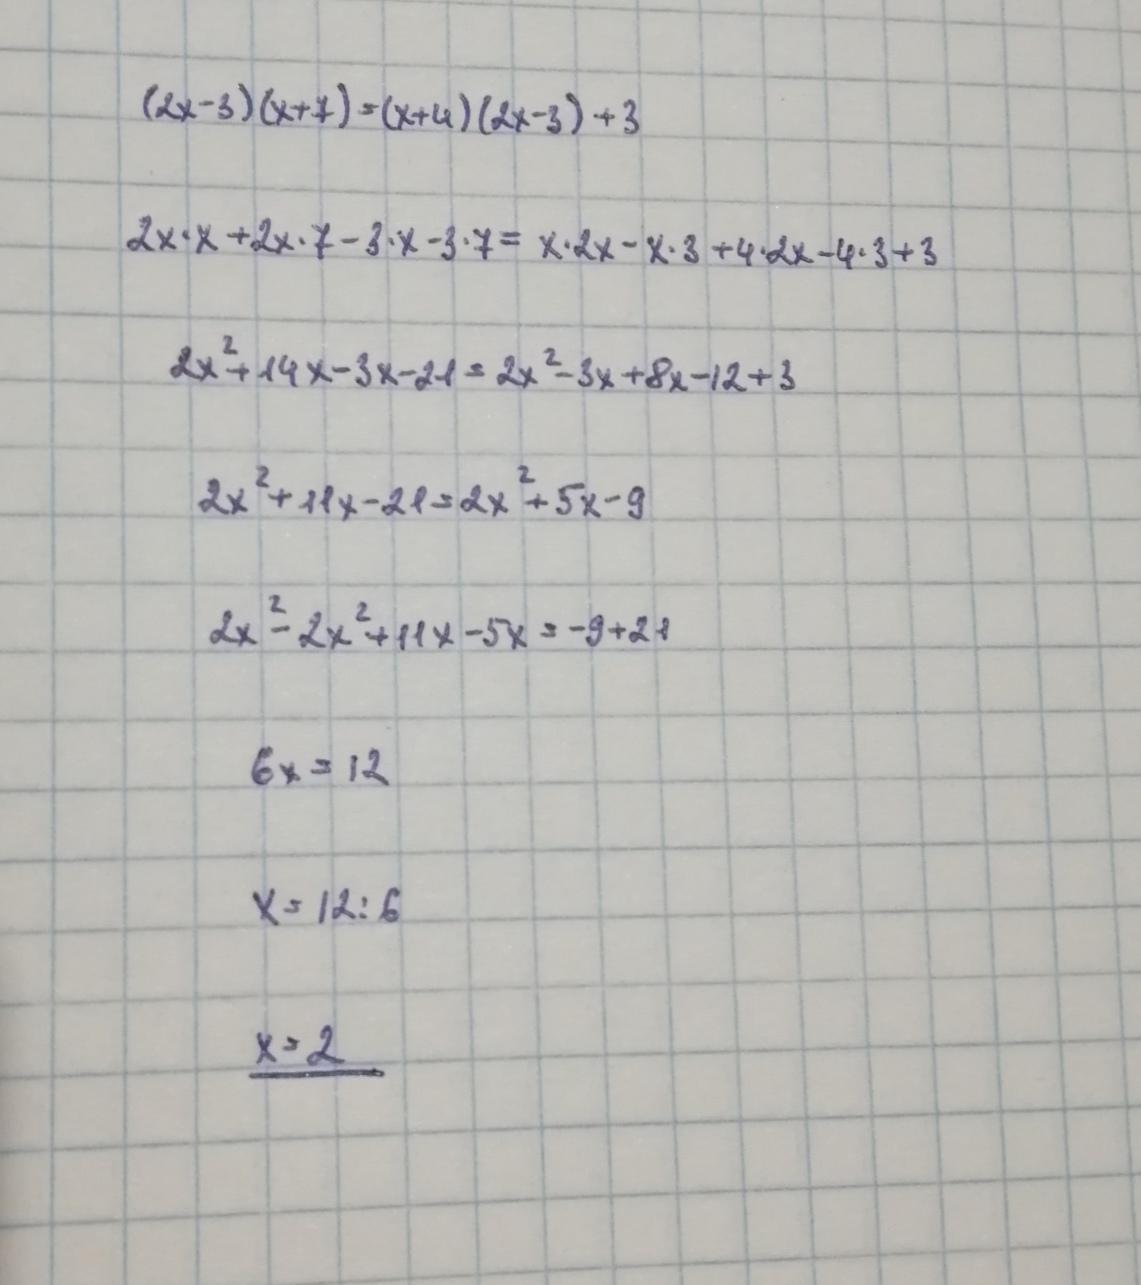 (2x-3)(x+7)=(x+4)(2x-3)+3
2x·x+2x·7-3·x-3·7=x·2x-x·3+4·2x-4·3+3
2x²+14x-3x-21=2x²-3x+8x-12+3
2x²+11x-21=2x²+5x-9
2x²-2x²+11x-5x=-9+21
6x=12
x=12:6
x=2